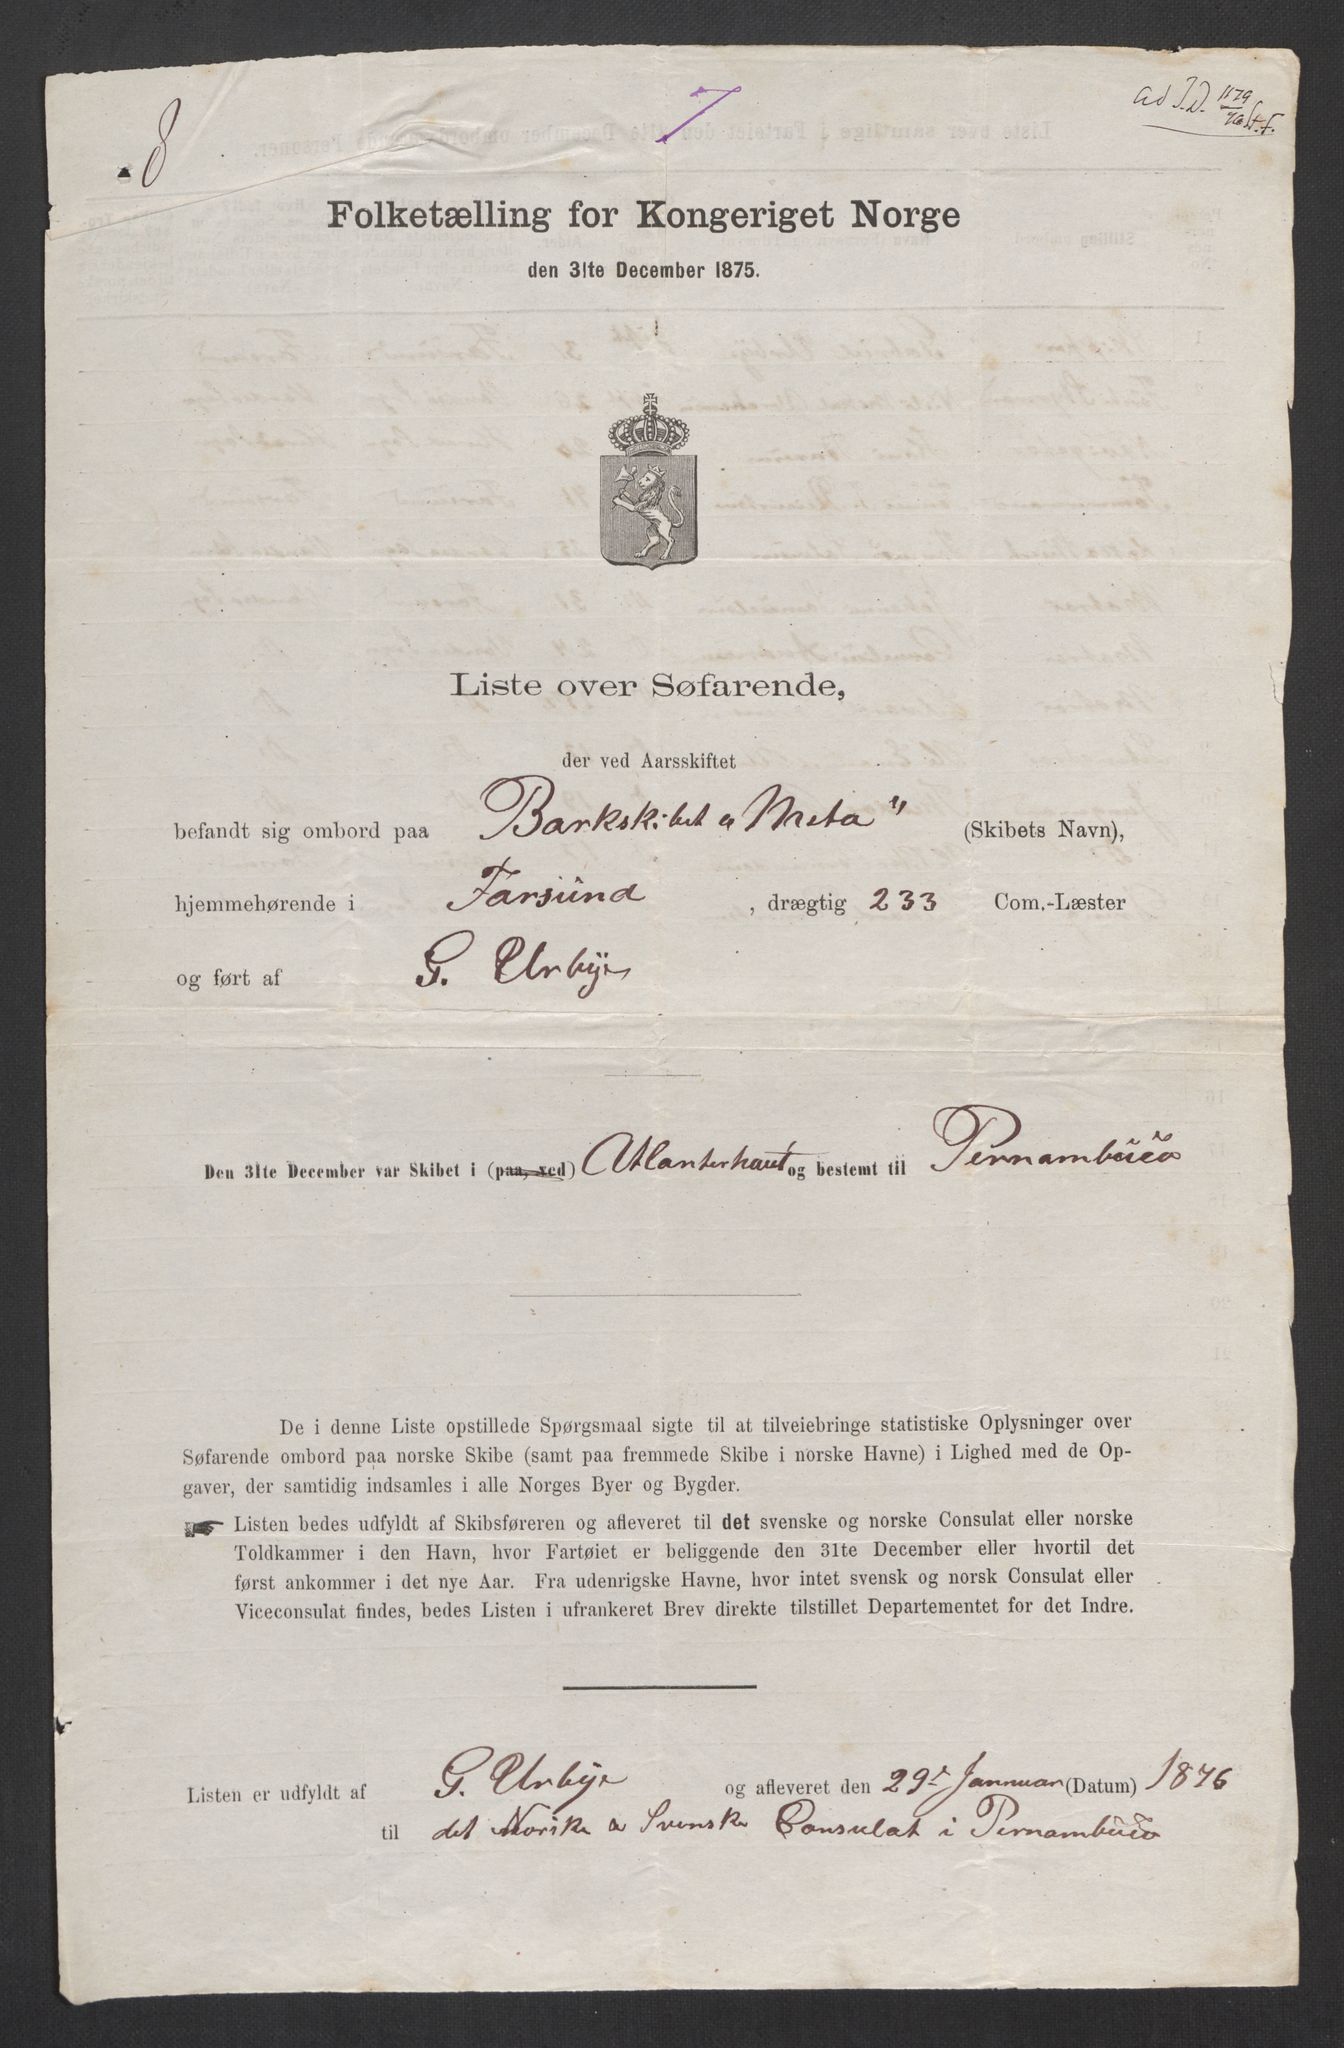 8
7
ad J.D. 1179/76 St. f.
Folketælling for Kongeriget Norge
den 31te December 1875.
Liste over Søfarende,
der ved Aarsskiftet
befandt sig ombord paa Barkskibet „Meta" (Skibets Navn),
hjemmehørende i Farsund, drægtig 233 Com.-Læster
og ført af G. Urbye
Den 31te December var Skibet i (paa, ved) Atlanterhavet og bestemt til Pernambuco
De i denne Liste opstillede Spørgsmaal sigte til at tilveiebringe statistiske Oplysninger over
Søfarende ombord paa norske Skibe (samt paa fremmede Skibe i norske Havne) i Lighed med de Op-
gaver, der samtidig indsamles i alle Norges Byer og Bygder.
Listen bedes udfyldt af Skibsføreren og afleveret til det svenske og norske Consulat eller norske
Toldkammer i den Havn, hvor Fartøiet er beliggende den 31te December eller hvortil det
først ankommer i det nye Aar. Fra udenrigske Havne, hvor intet svensk og norsk Consulat eller
Viceconsulat findes, bedes Listen i ufrankeret Brev direkte tilstillet Departementet for det Indre.
Listen er udfyldt af G. Urbye og afleveret den 29de Januar (Datum) 1876
til det Norske & Svenske Consulat i Pernambuco